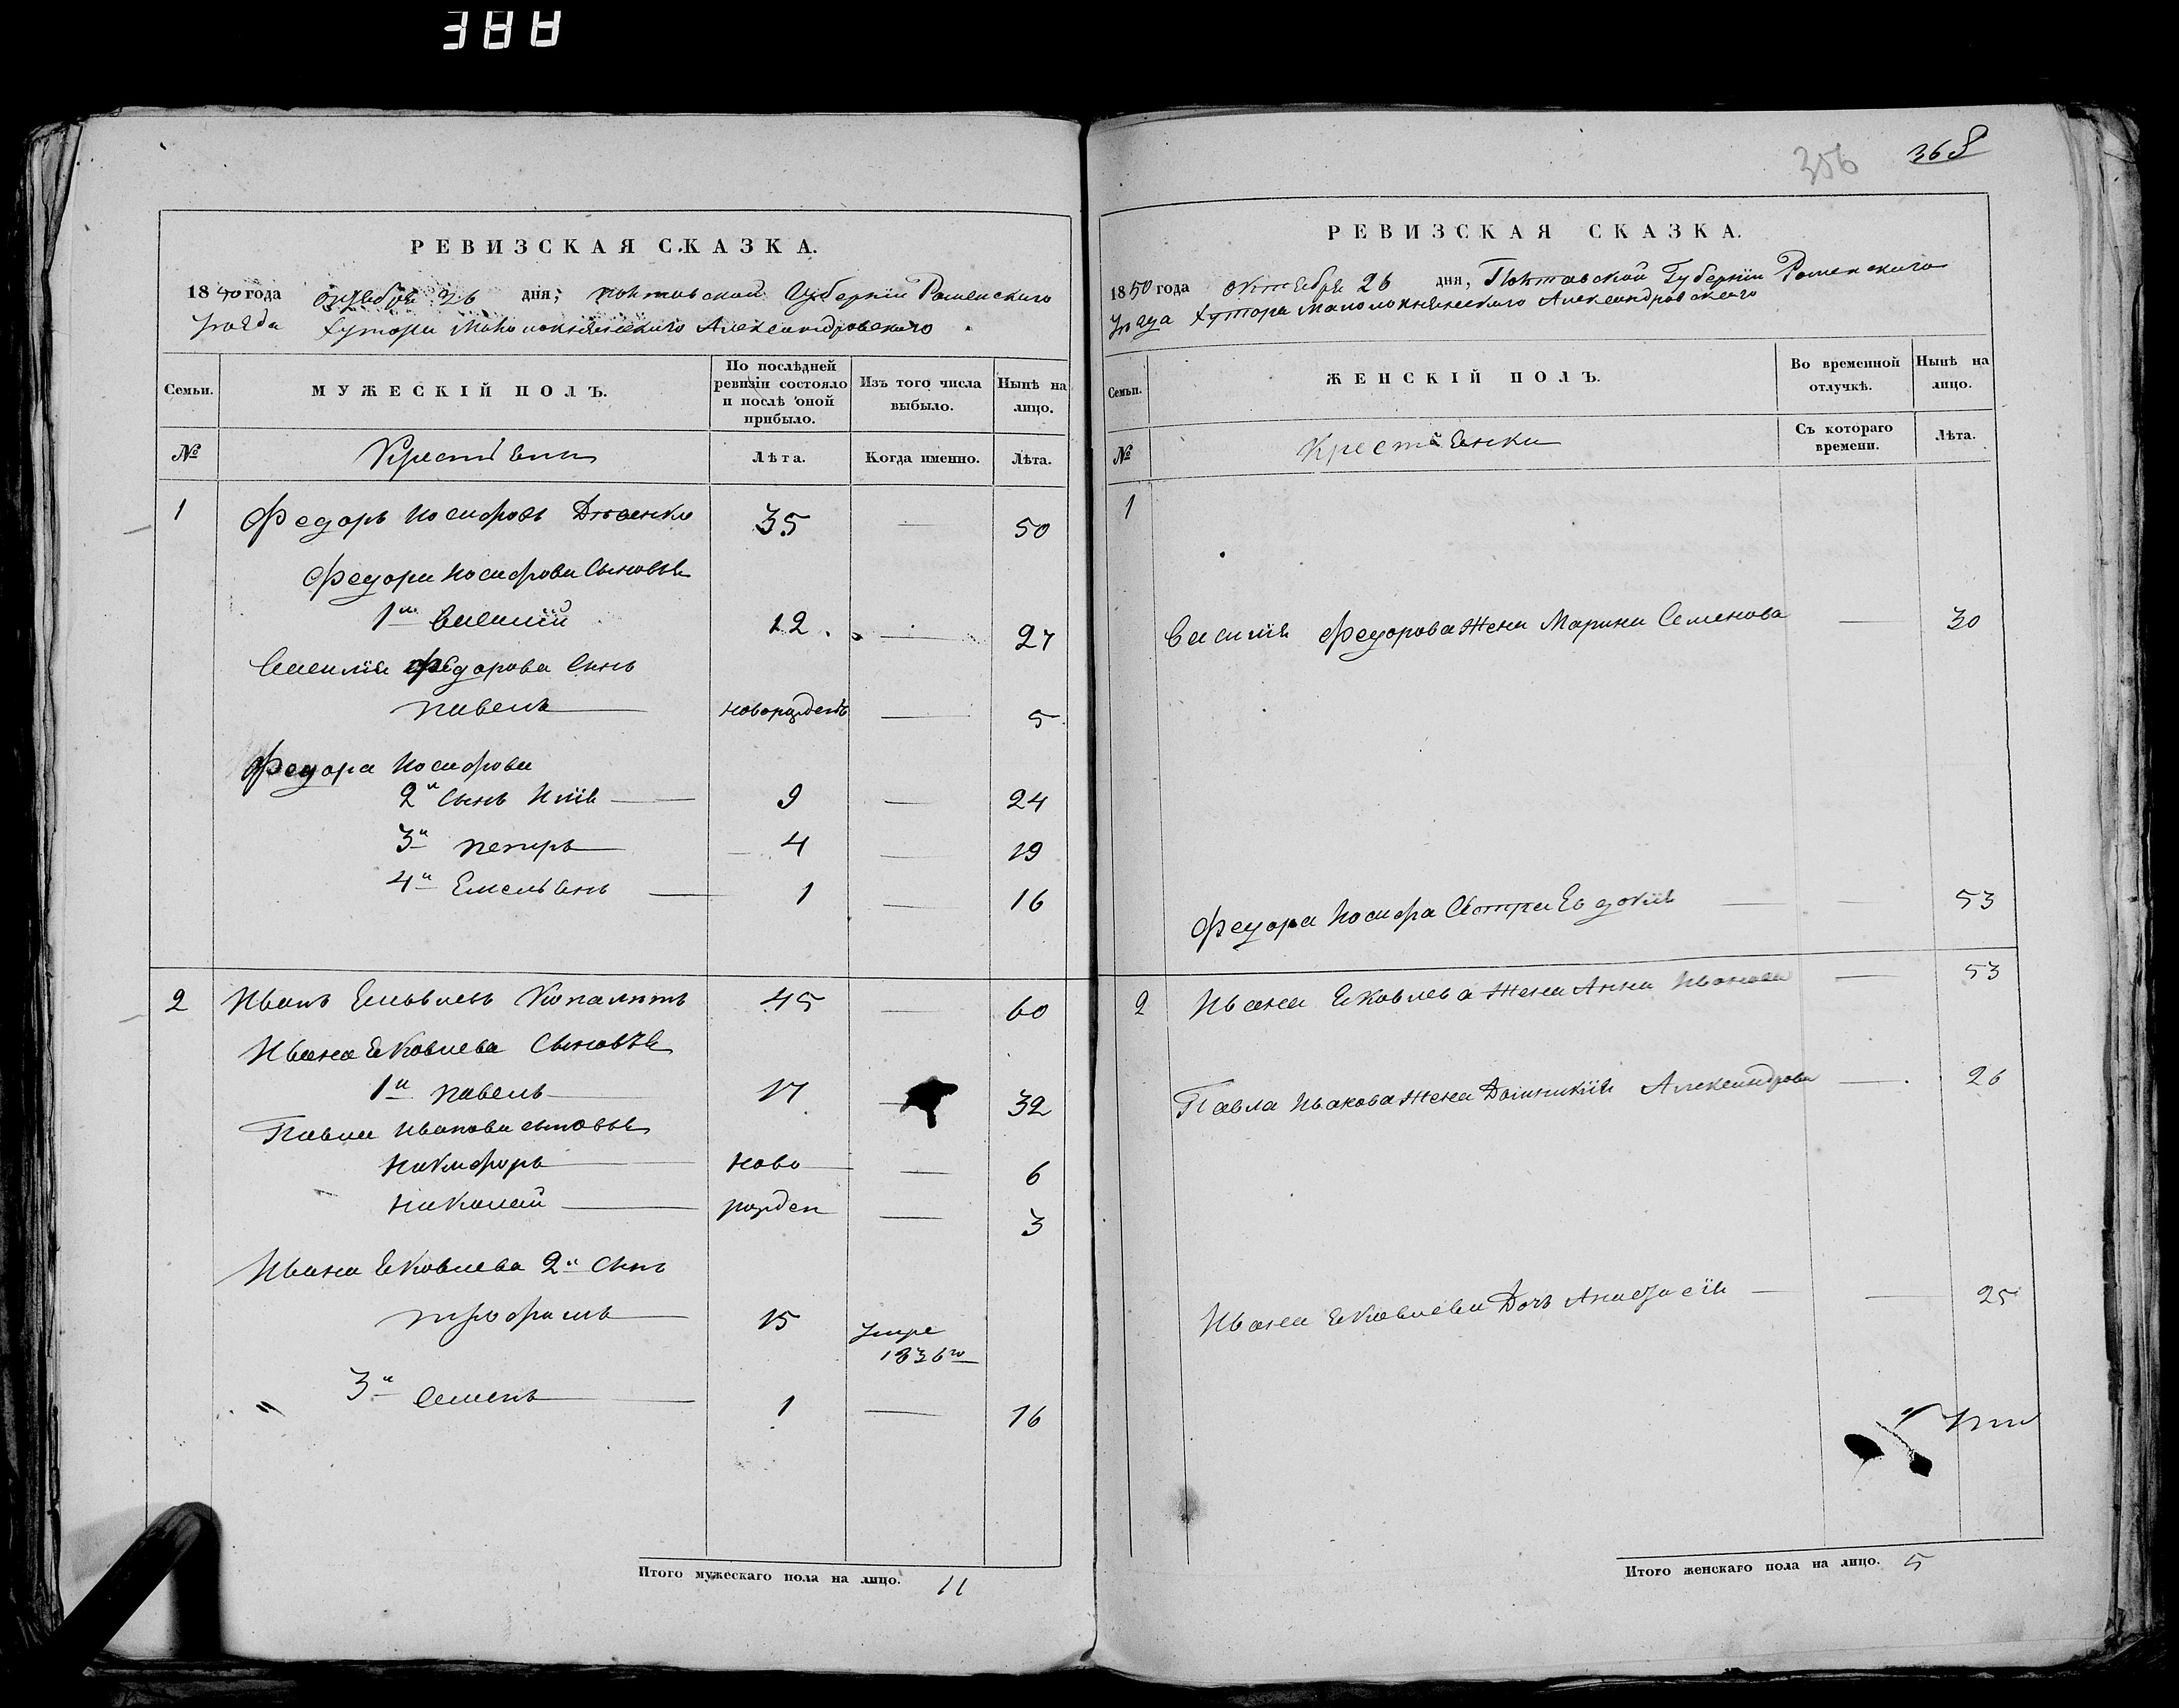 388
РЕВИЗСКАЯ СКАЗКА.
1850 года октября 26 дня, Полтавской Губернiи Роменского
уезда хутора Малолокнянского Александровского
Семьи.
МУЖЕСКІЙ ПОЛЪ.
По послѣдней ревизіи состояло и послѣ оной прибыло.
Изъ того числа выбыло.
Нынѣ на лицо.
№
Крестіяни
Лѣта.
Когда именно.
Лѣта.
1 Федоръ Иосифовъ 35 — 50
Федора Иосифова Сыновья
1й Василій 12 — 27
Василия Федорова Сынъ
Павелъ новорожденъ — 5
Федора Иосифова
2й Сынъ Илія 9 — 24
3й Петръ 4 — 19
4й Емельянъ 1 — 16
2 Иванъ Яковлевъ 45 — 60
Ивана Яковлева Сыновья
1й Павелъ 17 — 32
Павла Иванова сыновья
Никифоръ ново — 6
Николай рожден — 3
Ивана Яковлева 2й Сынъ
Трофимъ 15 умре 1836го
3й Семенъ 1 — 16
Итого мужескаго пола на лицо. 11
356 368
РЕВИЗСКАЯ СКАЗКА.
1850 года октября 26 дня, Полтавской Губерніи Роменского
уезда хутора Малолокнянского Александровского
Семьи.
ЖЕНСКІЙ ПОЛЪ.
Во временной отлучкѣ.
Нынѣ на лицо.
№
Крестіянки
Съ котораго времени.
Лѣта.
1
Василія Федорова жена Марина Семенова — 30
Федора Иосифа Сестра Евдокія — 53
2 Ивана Яковлева жена Анна Иванова — 53
Павла Иванова жена Домникія Александрова — 26
Ивана Яковлева Дочь Анастасія — 25
Итого женскаго пола на лицо. 5